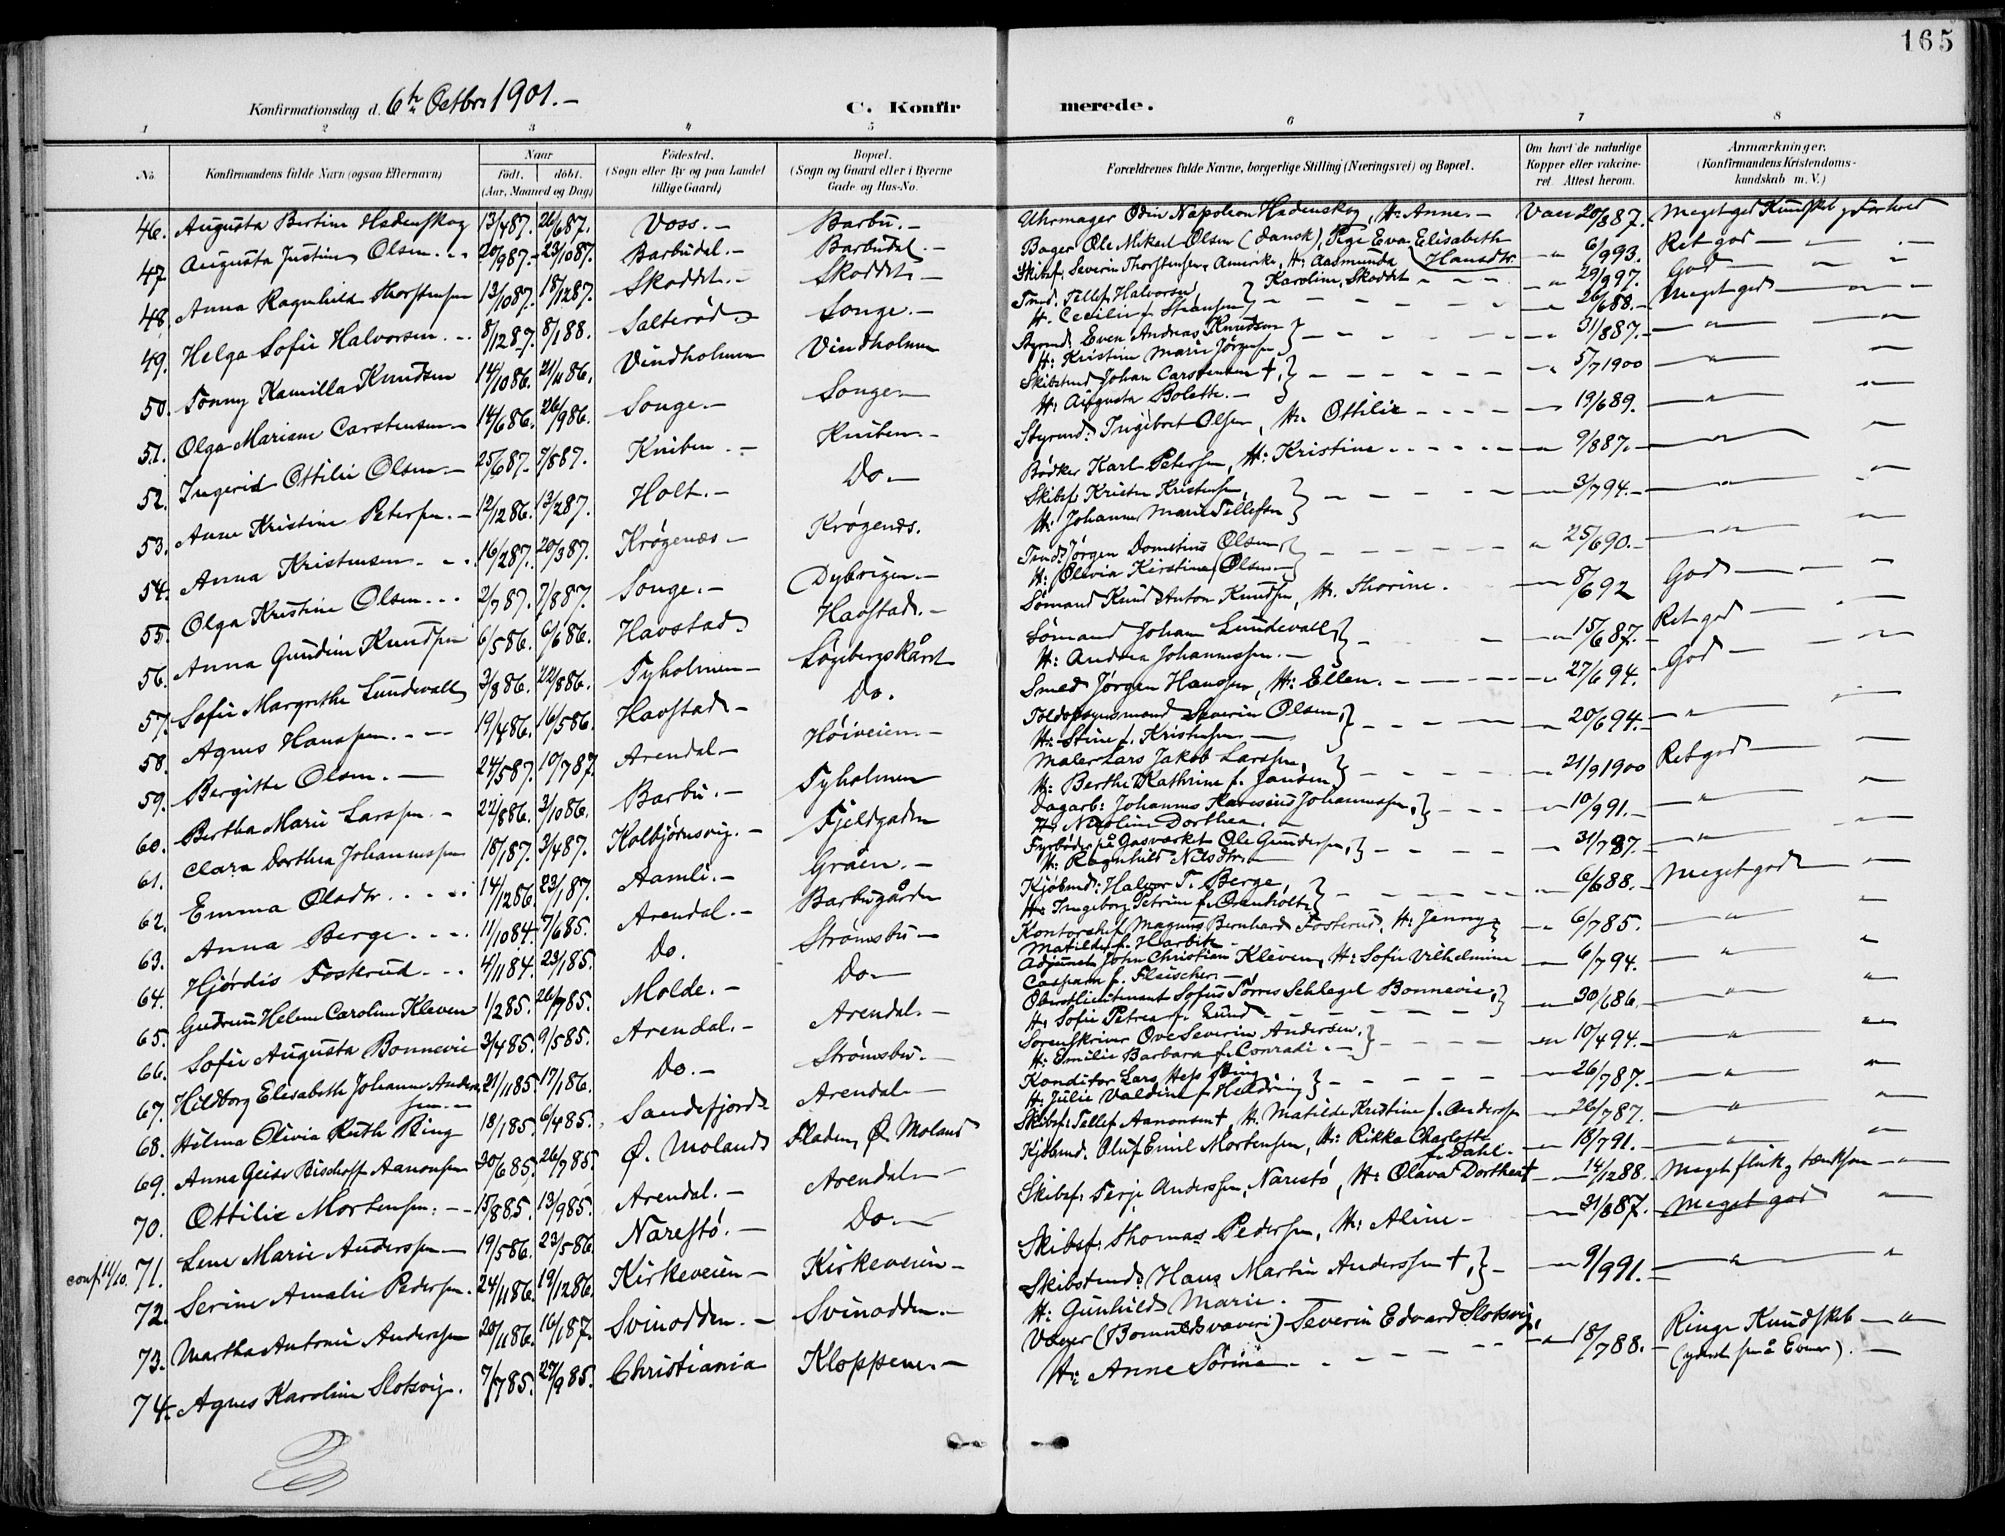 165
Konfirmationsdag d. 6te Octbr 1901.-
C. Konfirmerede.
1 2 3 4 5 6 7 8
No. Konfirmandens fulde Navn (ogsaa Efternavn) Naar født. døbt. (Aar, Maaned og Dag) Fødested. (Sogn eller By og paa Landet tillige Gaard) Bopæl. (Sogn og Gaard eller i Byerne Gade og Hus-No. Forældrenes fulde Navne, borgerlige Stilling (Næringsvei) og Bopæl. Om havt de naturlige Kopper eller vaccineret. Attest herom. Anmærkninger. (Konfirmandens Kristendomskundskab m. V.)
46. Augusta Bertine Hedenskog 13/487. 26/687. Voss.- Barbu.- Uhrmager Odin Napoleon Hedenskog, H: Anne.- Vacc 20/887. Meget god Kundskab, Forhold
47. Augusta Justine Olsen 20/987. 23/1087. Barbudal.- Barbudal.- Bager Ole Mikael Olsen (dansk) Pige Eva Elisabeth Hansdtr 6/993. Ret god
48. Anna Ragnhild Thorstensen 13/1087. 18/1287. Skoddet.- Skoddet.- Skibsf. Severin Thorstensen, Amerika, H: Aasmunda Karoline, Skoddet 29/997. God
49. Helga Sofie Halvorsen 8/1287. 8/188. Salterød Songe.- Tmd. Tellef Halvorsen H. Cecilie f. 26/688. Meget god
50. Tonny Kamilla Knudsen 14/1086. 21/1186. Vindholmen Vindholmen Styrmd: Even Andreas Knudsen H: Kristine Marie Jörgensen 31/887.
51. Olga Mariane Carstensen 14/686. 26/986. Songe.- Songe.- Skibstmd Johan Carstensen †, H: Augusta Bolette.- 5/71900
52. Ingerid Ottilie Olsen.- 25/687. 7/887. Kniben.- Kniben.- Styrmd: Ingebret Olsen, H: Ottilie 19/689.
53. Anne Kristine Petersen.- 12/1286. 13/287. Holt.- Do.- Bødker Karl Petersen, H: Kristine 9/887.
54. Anna Kristensen 16/287. 20/387. Krøgenæs.- Krøgenæs. Skibsf: Krister Kristensen, H: Johanne Marie Tellefsen 3/794.
55. Olga Kristine Olsen 2/787. 7/887. Songe.- Dybvigen.- Tmd: Jørgen Dometius Olsen, H: Olevia Kirstine Olsen 25/690.
56. Anna Gundine Knudsen 6/586. 6/686. Havstad Havstad.- Sømand Knud Anton Knudsen, H. Thorine. 8/692 God
57. Sofie Margrethe Lundevall 3/886. 22/886. Tyholmen Løgebergskåret Sømand Johan Lundevall H: Andrea Johannessen.- 15/687. Ret god
58. Agnes Hanssen 19/486. 16/586. Havstad.- Do. Smed Jørgen Hanssen, H: Ellen. 27/694. God
59. Bergitte Olsen.- 24/587. 10/787. Arendal.- Høiveien.- Toldopsynsmand Severin Olsen, H: Stine f. Kristensen.- 20/694.
60. Bertha Marie Larssen.- 22/886. 3/1086. Barbu.- Tyholmen Maler Lars Jakob Larssen, H: Berthe Kathrine f. Jansen 21/91900 Ret god
61. Clara Dorthea Johannessen 18/187. 3/487. Kolbjørnsvig.- Fjeldgaden Dagarb: Johannes Johannessen, H. Nicoline Dorthea. 10/991.
62. Emma Olsdtr 14/1286. 23/187. Aamli.- Gråen.- Fyrbøder på Gasværket Ole Gundersen, H: Ragnhild Nilsdtr.- 31/787.
63. Anna Berge 11/1084. 7/685. Arendal.- Barbugården Kjøbmd: Halvor T. Berge, H: Ingeborg Petrine f. 6/688. Meget god
64. Hjørdis Fosterud 4/1184. 23/185. Do. Strømsbu- Kontorchef Magnus Bernhard Fosterud, H: Jenny Matilde f. Harbitz- 6/785.
65. Gudrun Helene Caroline Kleven 1/285. 26/785. Molde.- Do- Adjunct John Christian Kleven, H: Sofie Vilhelmine Caspara f. Fleischer.- 6/794.
66. Sofie Augusta Bonnevie 3/485. 9/585. Arendal.- Arendal.- Oberstlieutenant Sofus Tørres Schlegel Bonnevie, H: Sofie Petrea f. Lund 30/686.
67. Hildborg Elisabeth Johanne Andersen.- 21/1185. 17/186. Do.- Strømsbu.- Sorenskriver Ove Severin Andersen, H: Emilie Barbara f. Conradi.- 10/494.
68. Hilma Olivia Ruth Ring 18/185. 6/485. Sandefjord- Arendal- Konditor Lars Hess Bing H: Julie Valdine f. Heldring 26/787.
69. Anna Geise Bischoff Aanonsen 30/685. 26/785. Ø. Moland Fladen, Ø. Moland Skibsf: Tellef Aanonsen †, H. Matilde Kristine f. Anderssen 26/787.
70. Ottilie Mortensen. 15/885. 13/985. Arendal.- Arendal- Kjøbmd. Oluf Emil Mortensen, H: Rikka Charlotte f. Dahl.- 18/791.
conf 11/10. 71. Lene Marie Anderssen- 19/586. 23/586. Narestø.- Do.- Skibsf: Terje Anderssen, Narestø, H: Olava Dorthea † 14/1288. Meget flink og tænksom
72. Serine Amalie Pedersen. 24/1186. 19/1286. Kirkeveien- Kirkeveien- Skibsf: Thomas Pedersen, H: Aline- 31/887. Meget god
73. Martha Antonie Anderssen 20/1186. 16/187. Svinodden.- Svinodden.- Skibstmd: Hans Martin Anderssen †, H: Gunhild Marie. 9/991.
74. Agnes Karoline Slotsvig. 7/785. 27/985. Christiania Kloppene.- Væver (Bomuldsvæveri) Severin Edvard Slotsvig, H: Anne Sørine 18/788. Ringe Kundskab (yderst små Evner).